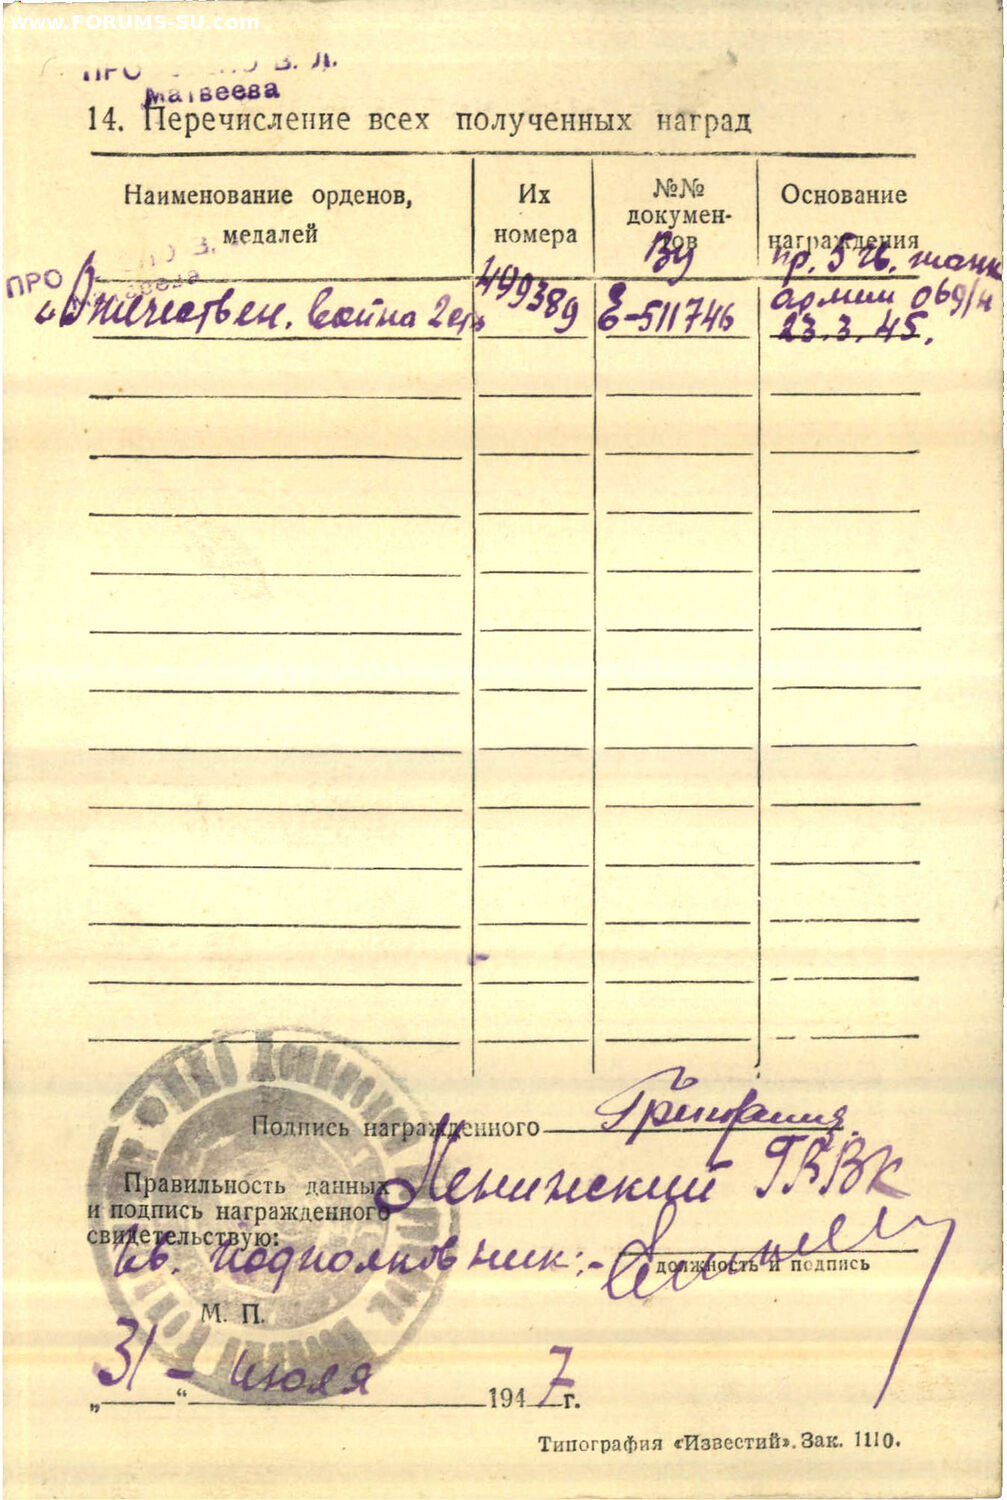 www.FORUMS-SU.com
ПРО В. Л.
Матвеева
14. Перечисление всех полученных наград
Наименование орденов, медалей
Их номера
№№ документов
Основание награждения
ПРО В.
„Отечествен. война 2 ст»
499389
Ву
Е-511746
пр. 5 гв. танк
армии 069/н
23.3.45.
Подпись награжденного
Ленинский РВВК
Правильность данных
и подпись награжденного
свидетельствую:
Гв. подполковник:-
должность и подпись
М. П.
„31“ - июля 1947 г.
Типография «Известий». Зак. 1110.